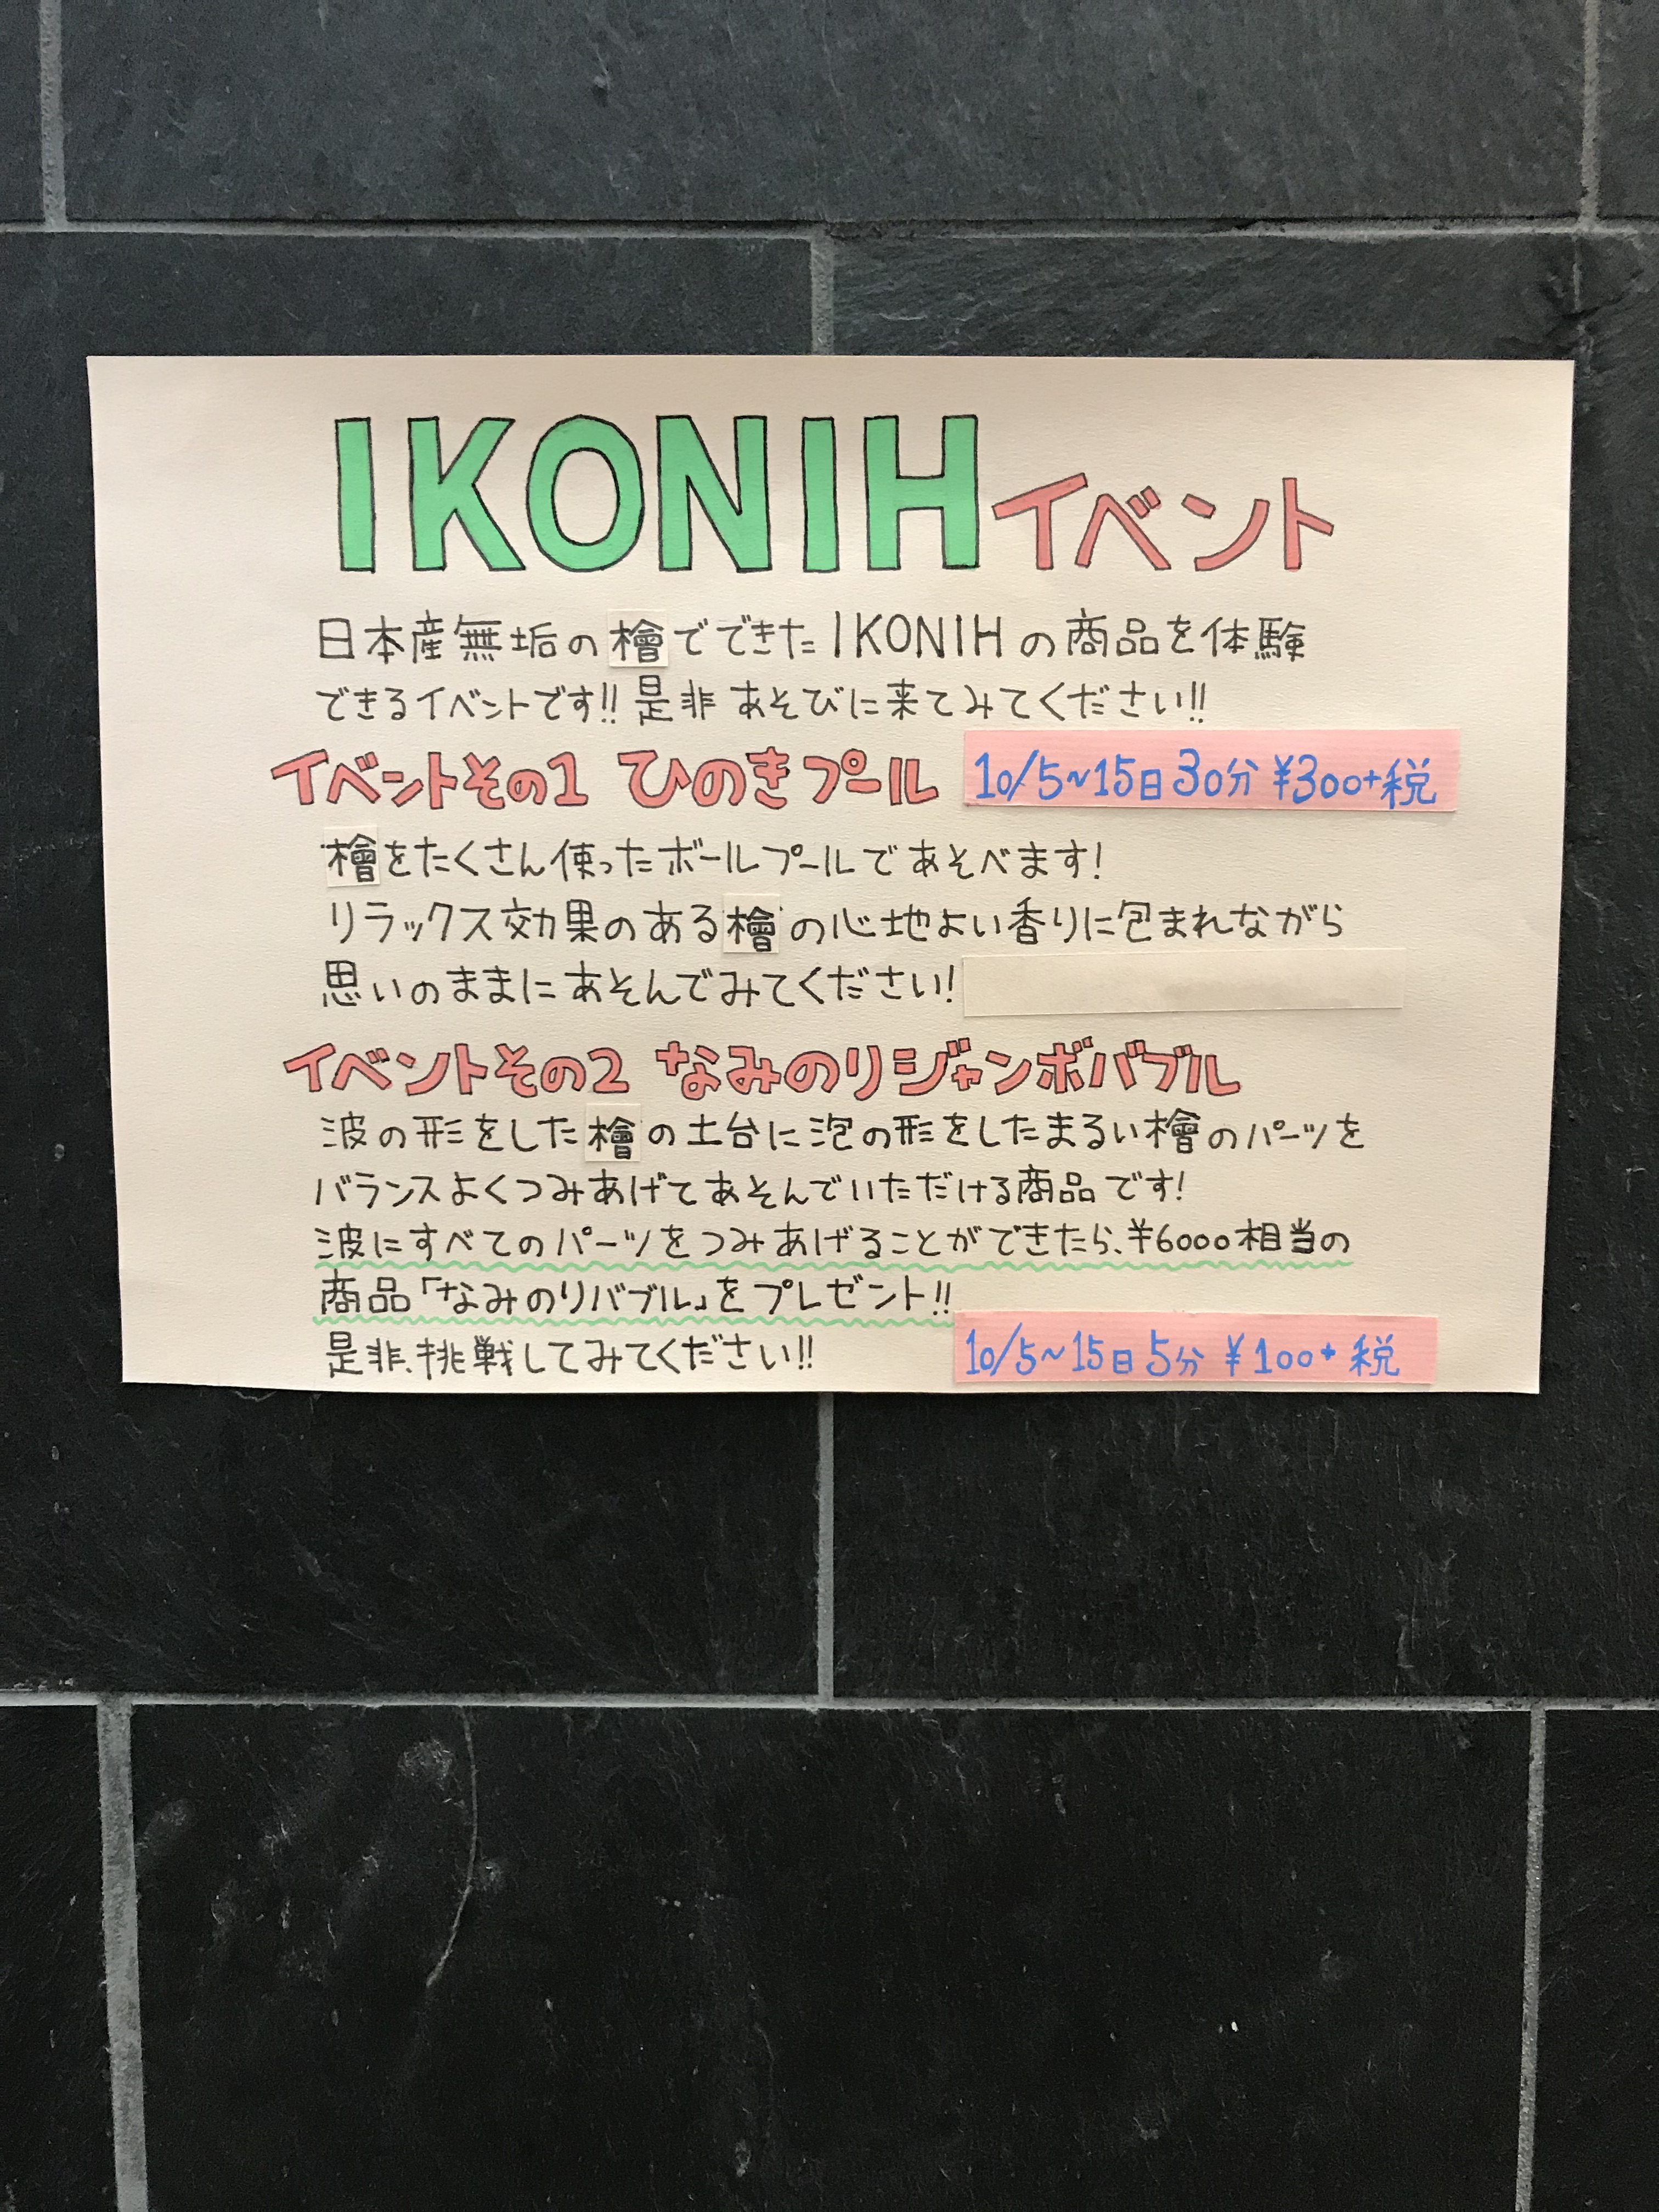 IKONIHイベント
日本産無垢の檜でできたIKONIHの商品を体験
できるイベントです!!是非あそびに来てみてください!!
イベントその1 ひのきプール 10/5~15日30分 ¥300+税
檜をたくさん使ったボールプールであそべます!
リラックス効果のある檜の心地よい香りに包まれながら
思いのままにあそんでみてください!
イベントその2 なみのりジャンボバブル
波の形をした檜の土台に泡の形をしたまるい檜のパーツを
バランスよくつみあげてあそんでいただける商品です!
波にすべてのパーツをつみあげることができたら、¥6000相当の
商品「なみのりバブル」をプレゼント!!
是非、挑戦してみてください!! 10/5~15日 5分 ¥100+税